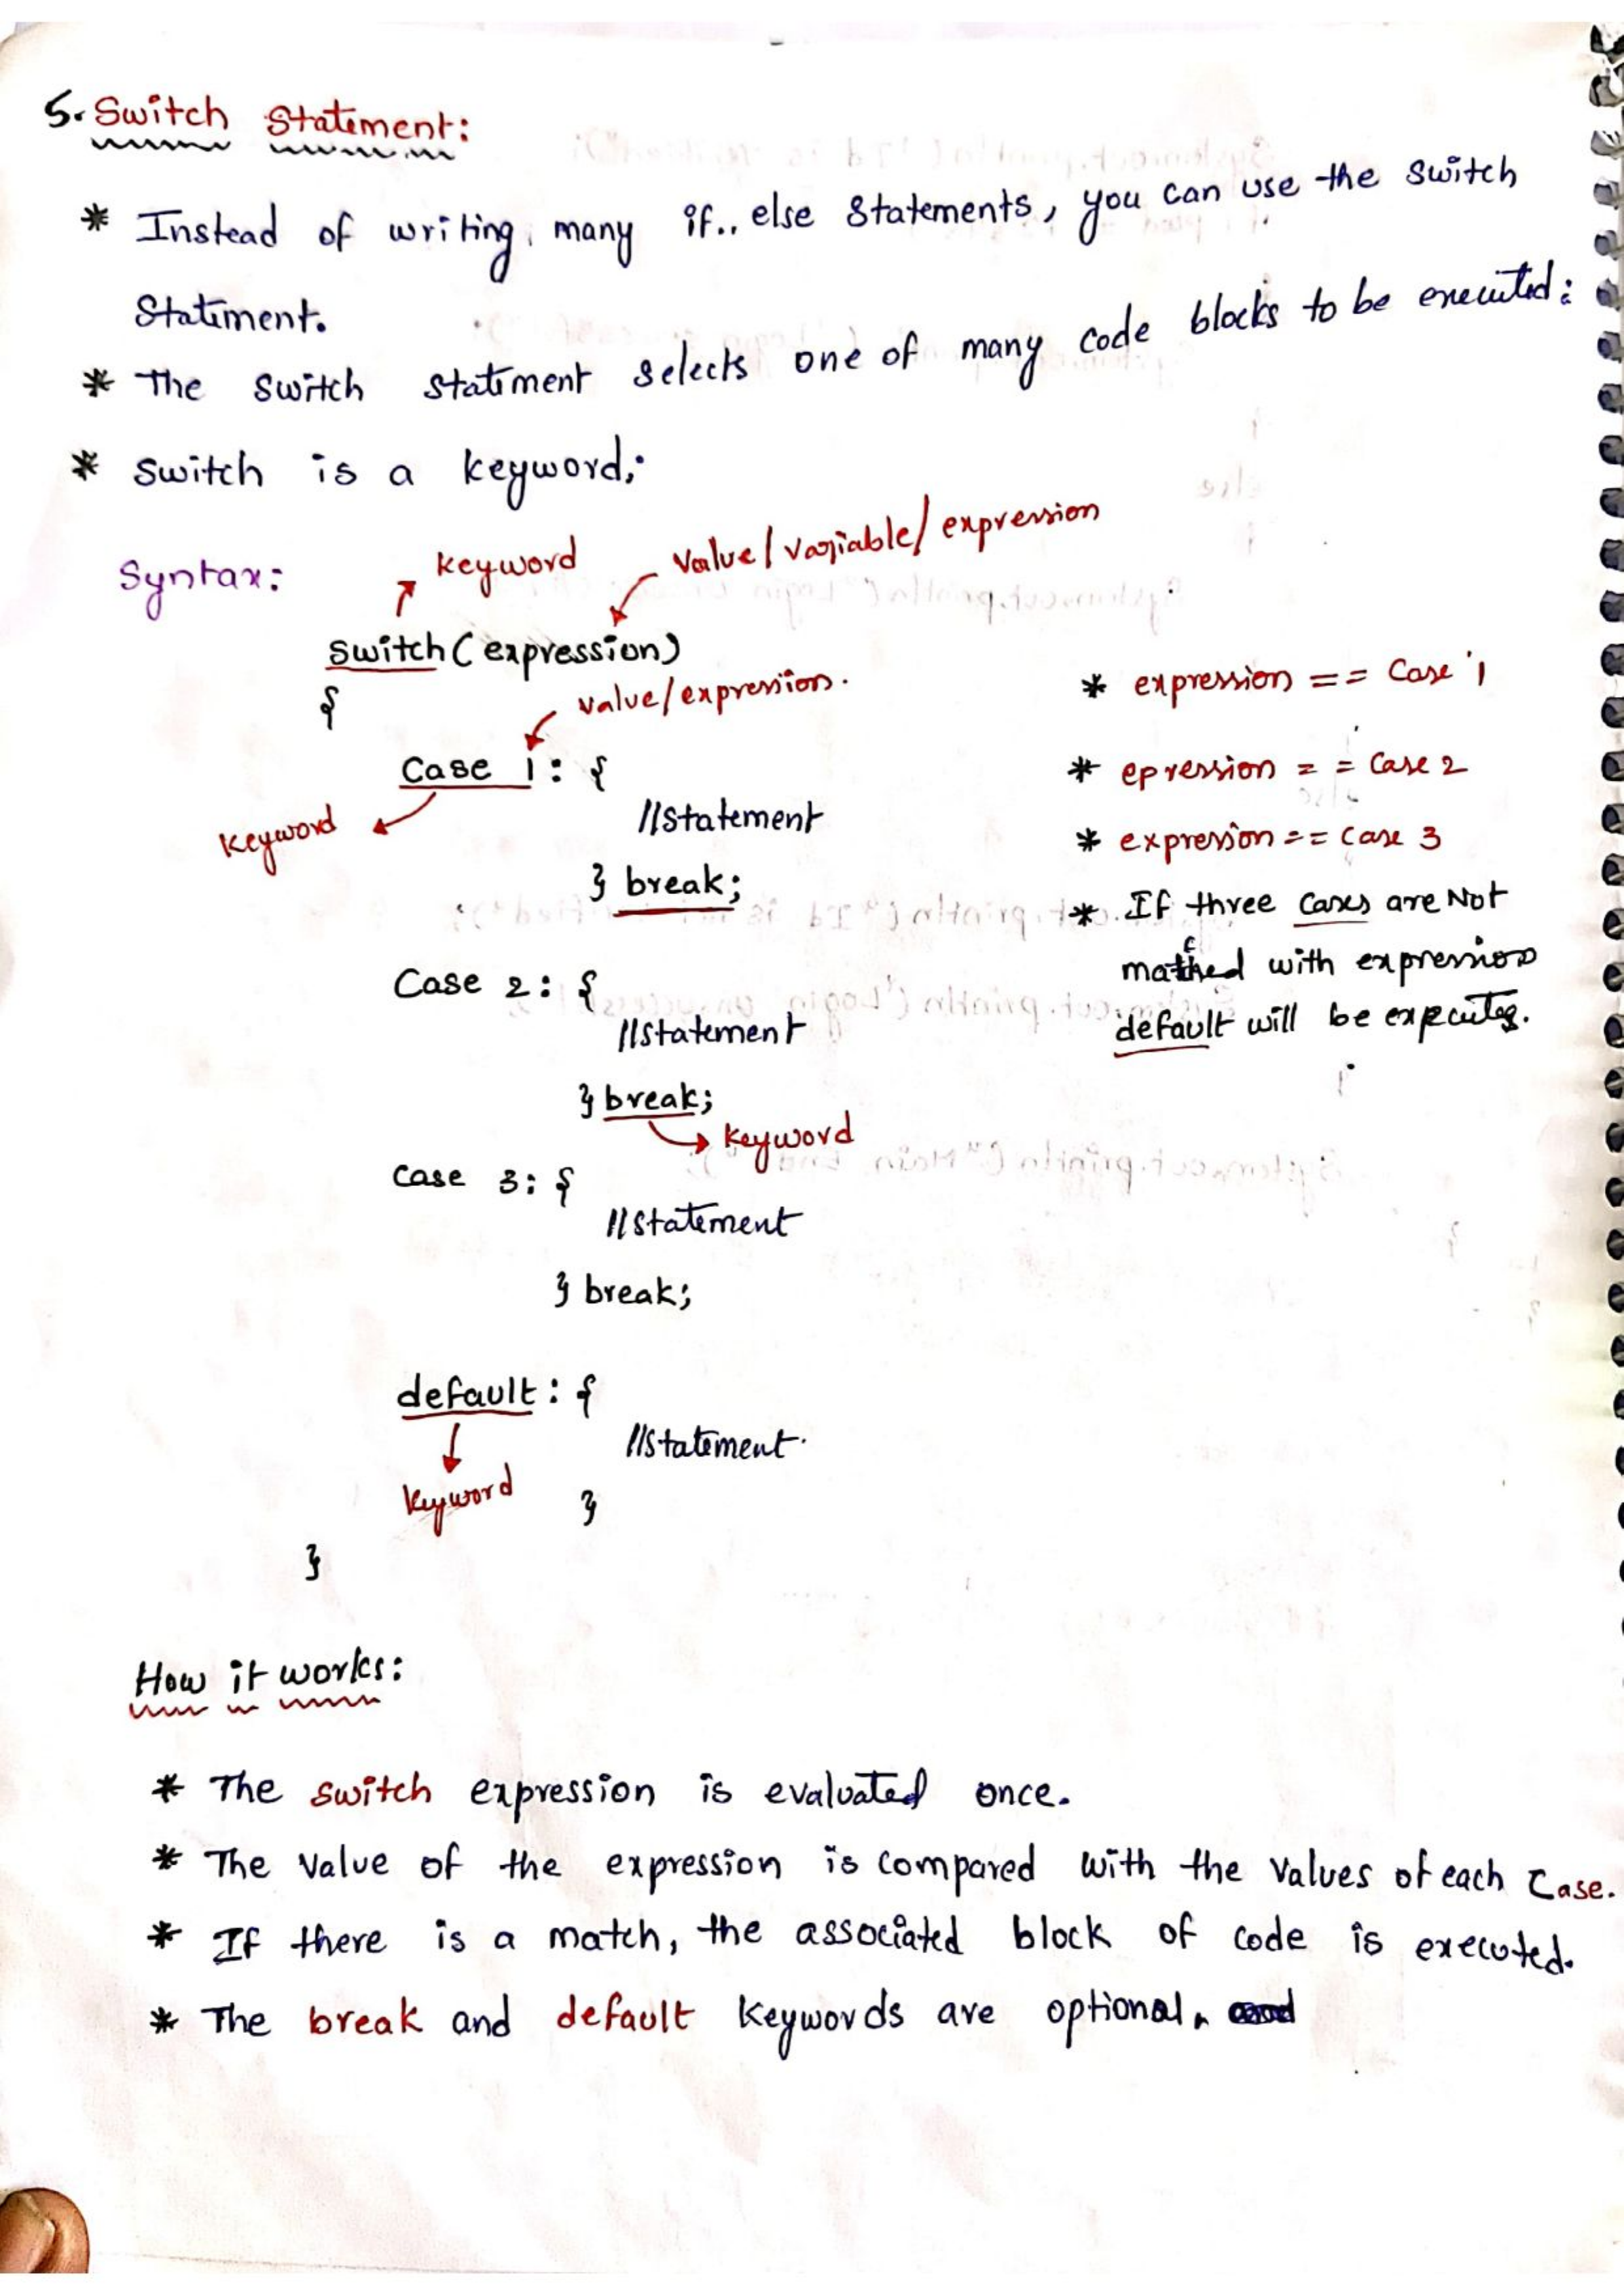 5. Switch Statement:
* Instead of writing many if.. else Statements, you can use the switch
Statement.
* The switch statement selects one of many code blocks to be executed:
* switch is a keyword;
Syntax:
keyword
value/variable/expression
switch(expression)
{
value/expression.
Case 1: {
keyword
//statement
} break;
Case 2: {
//statement
} break;
keyword
Case 3: {
//statement
} break;
default: {
//statement.
keyword
}
}
* expression == Case 1
* epression == Case 2
* expression == case 3
* If three cases are Not
matched with expression
default will be
How it works:
* The switch expression is evaluated once.
* The value of the expression is compared with the values of each case.
* If there is a match, the associated block of code is executed.
* The break and default keywords are optional.